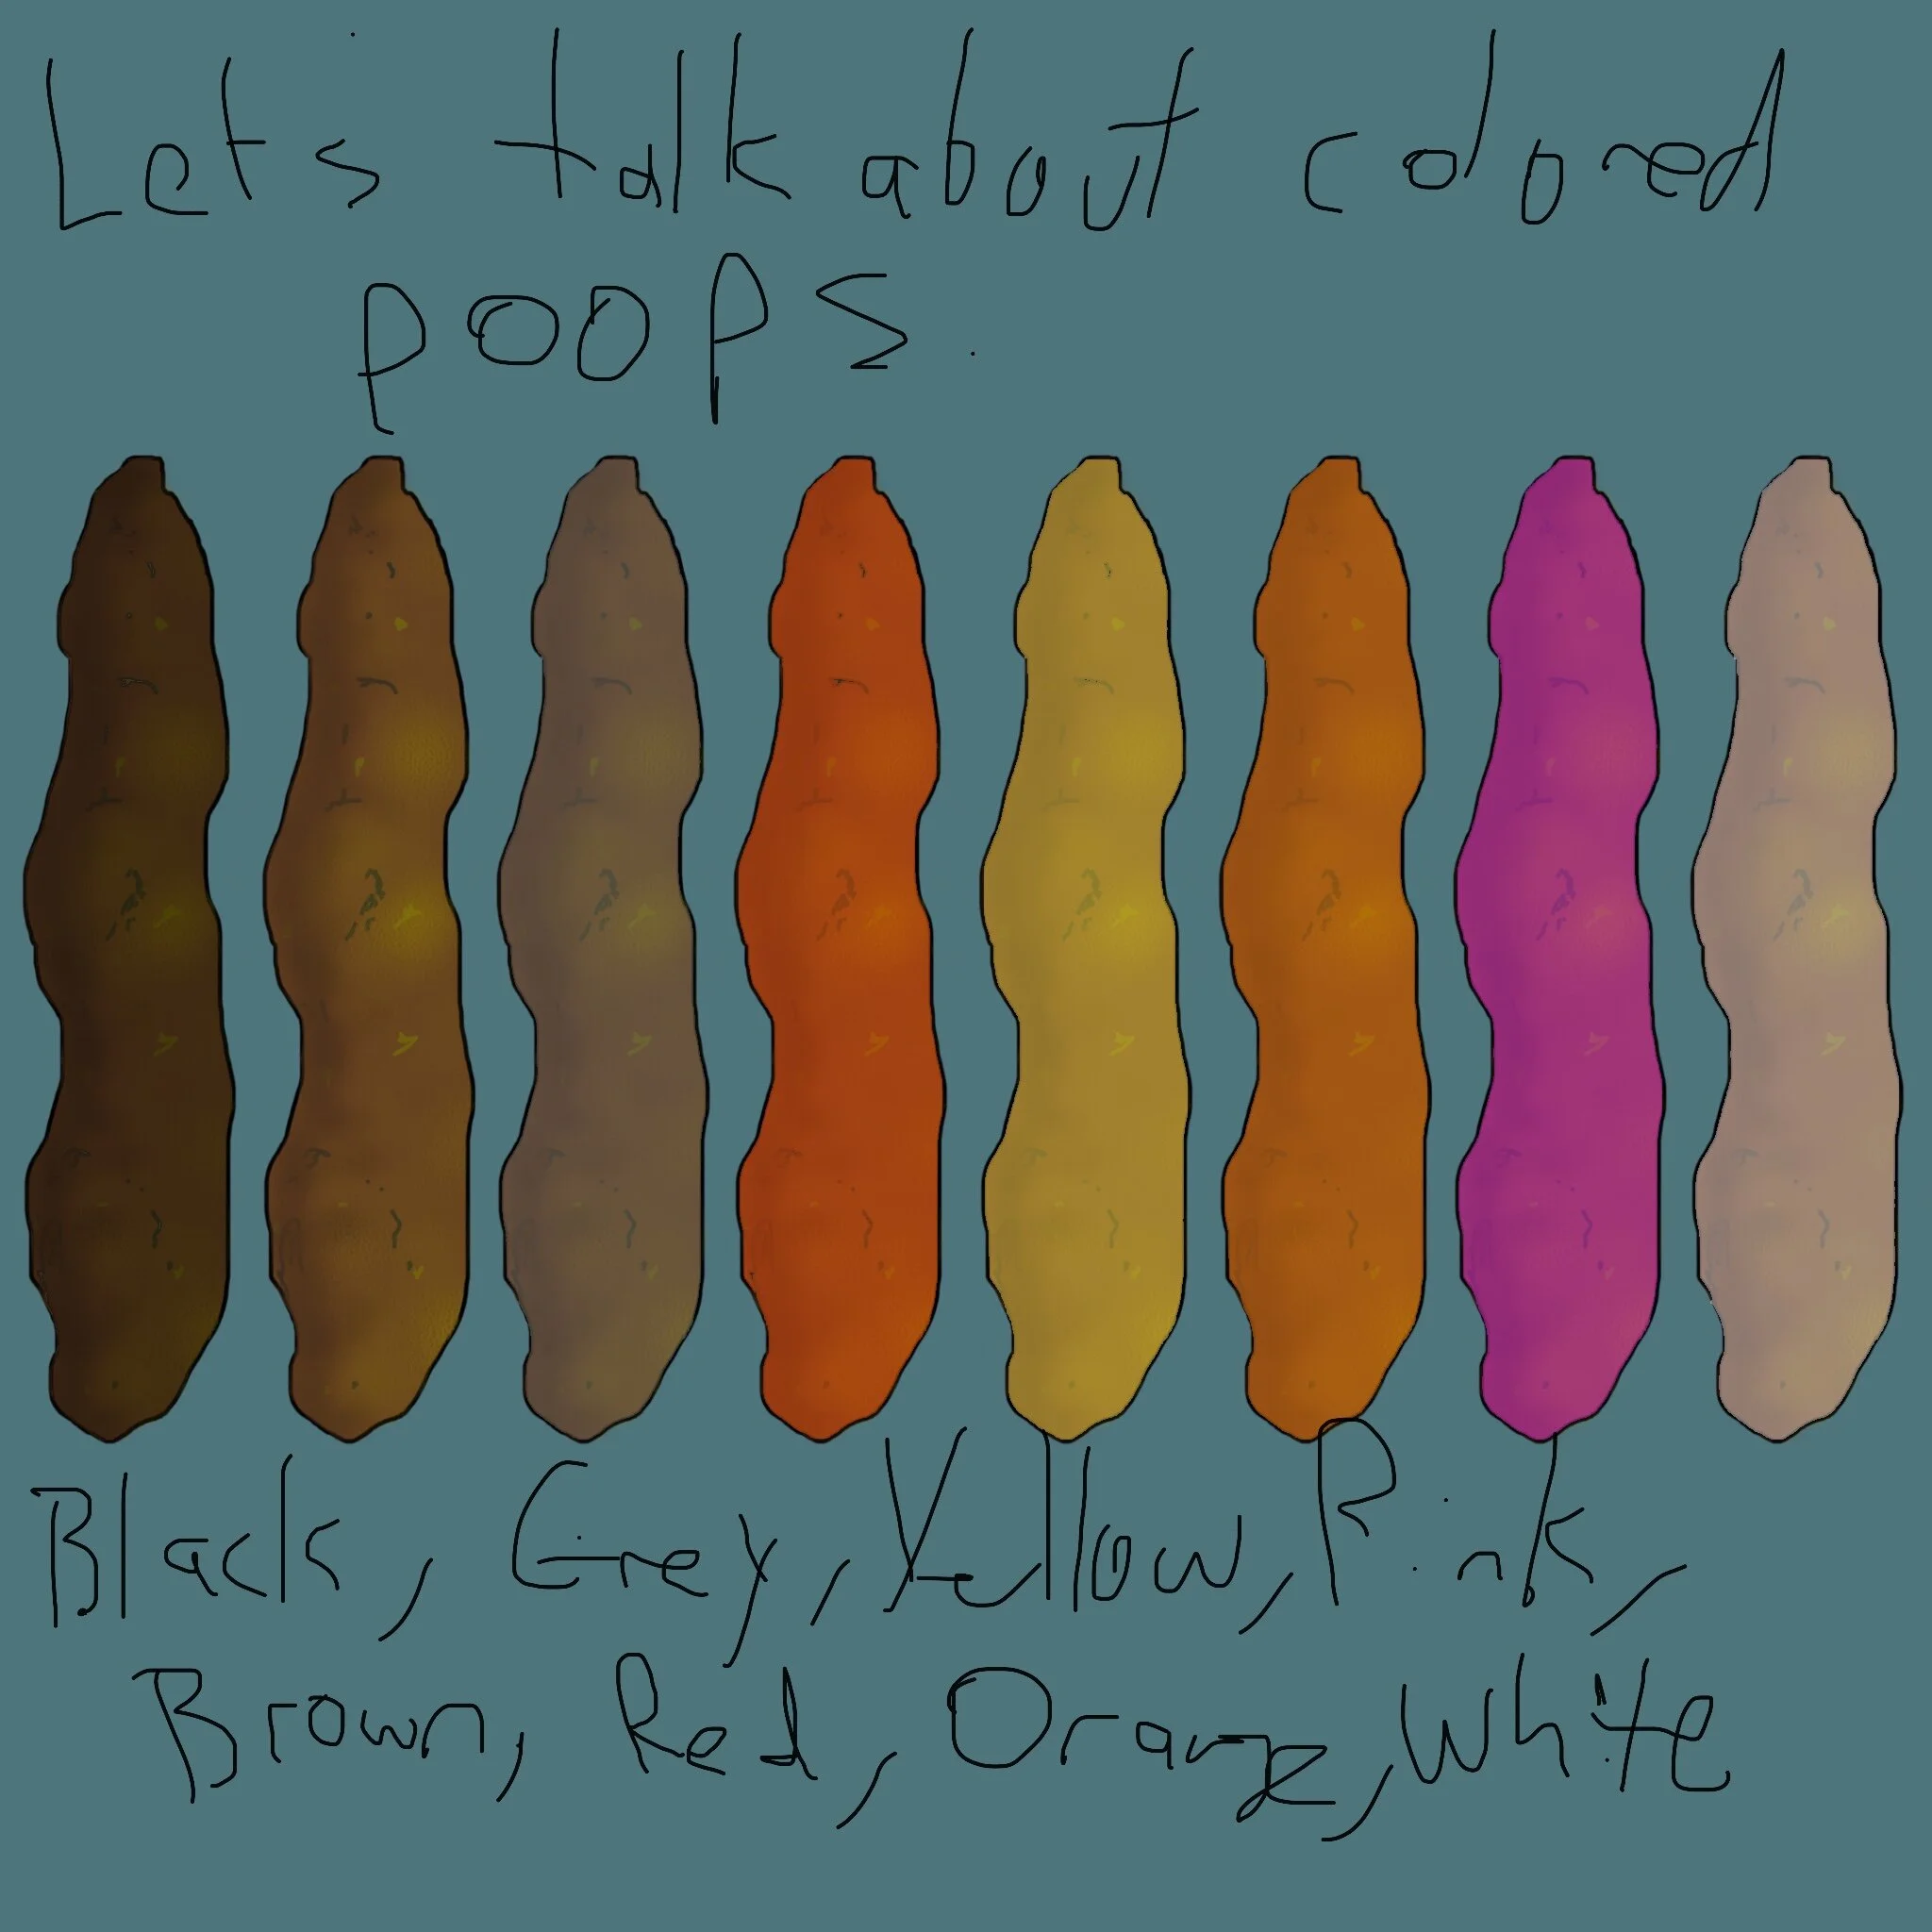 Let's talk about colored
poops.
Black, Grey, Yellow, Pink,
Brown, Red, Orange, White